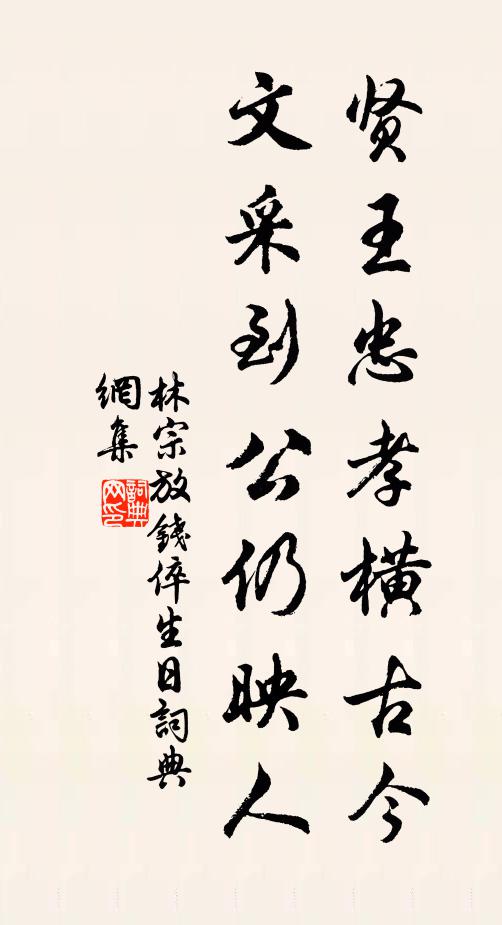 贤王忠孝横古今
文采到公仍映人
林宗放錢倅生日詞典
網集
詞典
网印